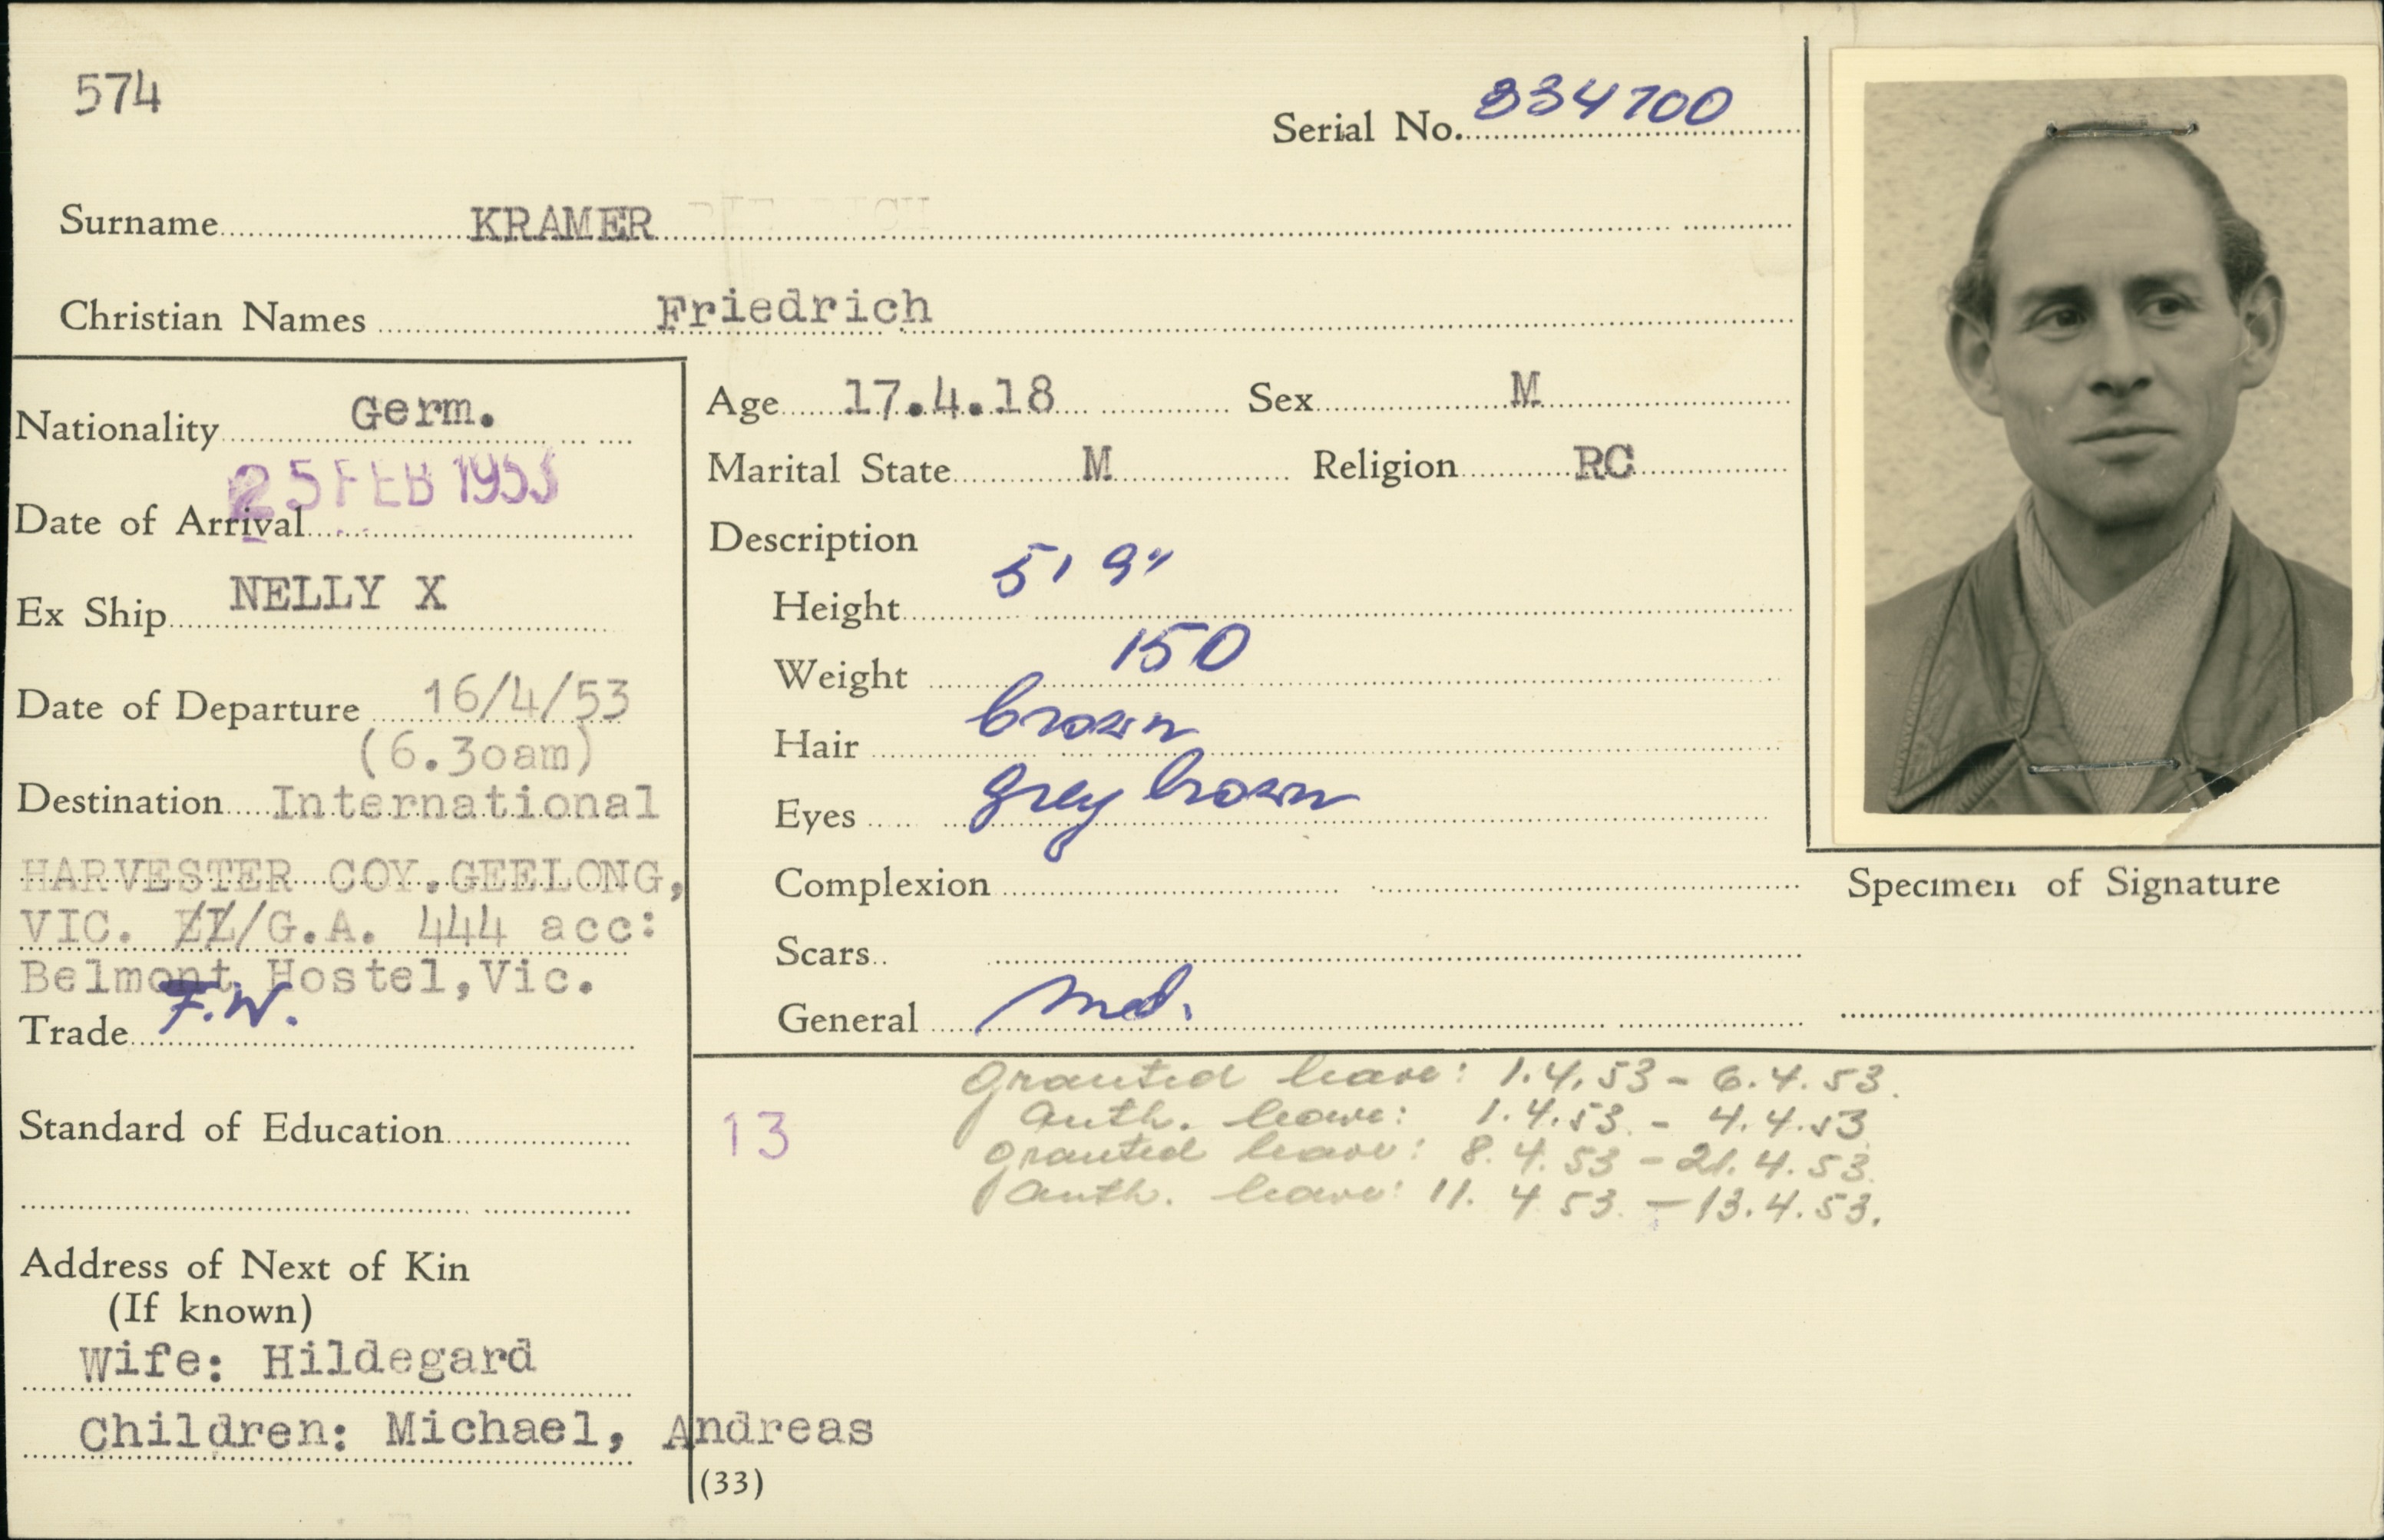 574
Serial No. 834700
Surname KRAMER
Christian Names Friedrich
Nationality Germ.
Date of Arrival 25 FEB 1953
Ex Ship NELLY X
Date of Departure 16/4/53
(6.30am)
Destination International
HARVESTER COY.GEELONG,
VIC. /G.A. 444 acc:
Belmont Hostel,Vic.
Trade F.W.
Standard of Education
Address of Next of Kin
(If known)
Wife: Hildegard
Children: Michael, Andreas
Age 17.4.18 Sex M
Marital State M Religion RC
Description
Height 5' 9"
Weight 150
Hair brown
Eyes grey brown
Complexion
Scars
General med.
Specimen of Signature
13
granted leave: 1.4.53 - 6.4.53.
auth. leave: 1.4.53. - 4.4.53
granted leave: 8.4.53 - 21.4.53.
auth. leave: 11.4 53. - 13.4.53.
(33)